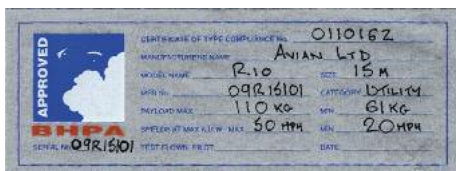 APPROVED
BHPA
SERIAL No 09R15101
CERTIFICATE OF TYPE COMPLIANCE No. 0110162
MANUFACTURERS NAME AVIAN LTD
MODEL NAME RIO SIZE 15 M
MFR No. 09R15101 CATEGORY UTILITY
PAYLOAD MAX 110 KG MIN 61KG
SPEEDS AT MAX MAX 50 MPH MIN 20MPH
TEST FLOWN PILOT DATE